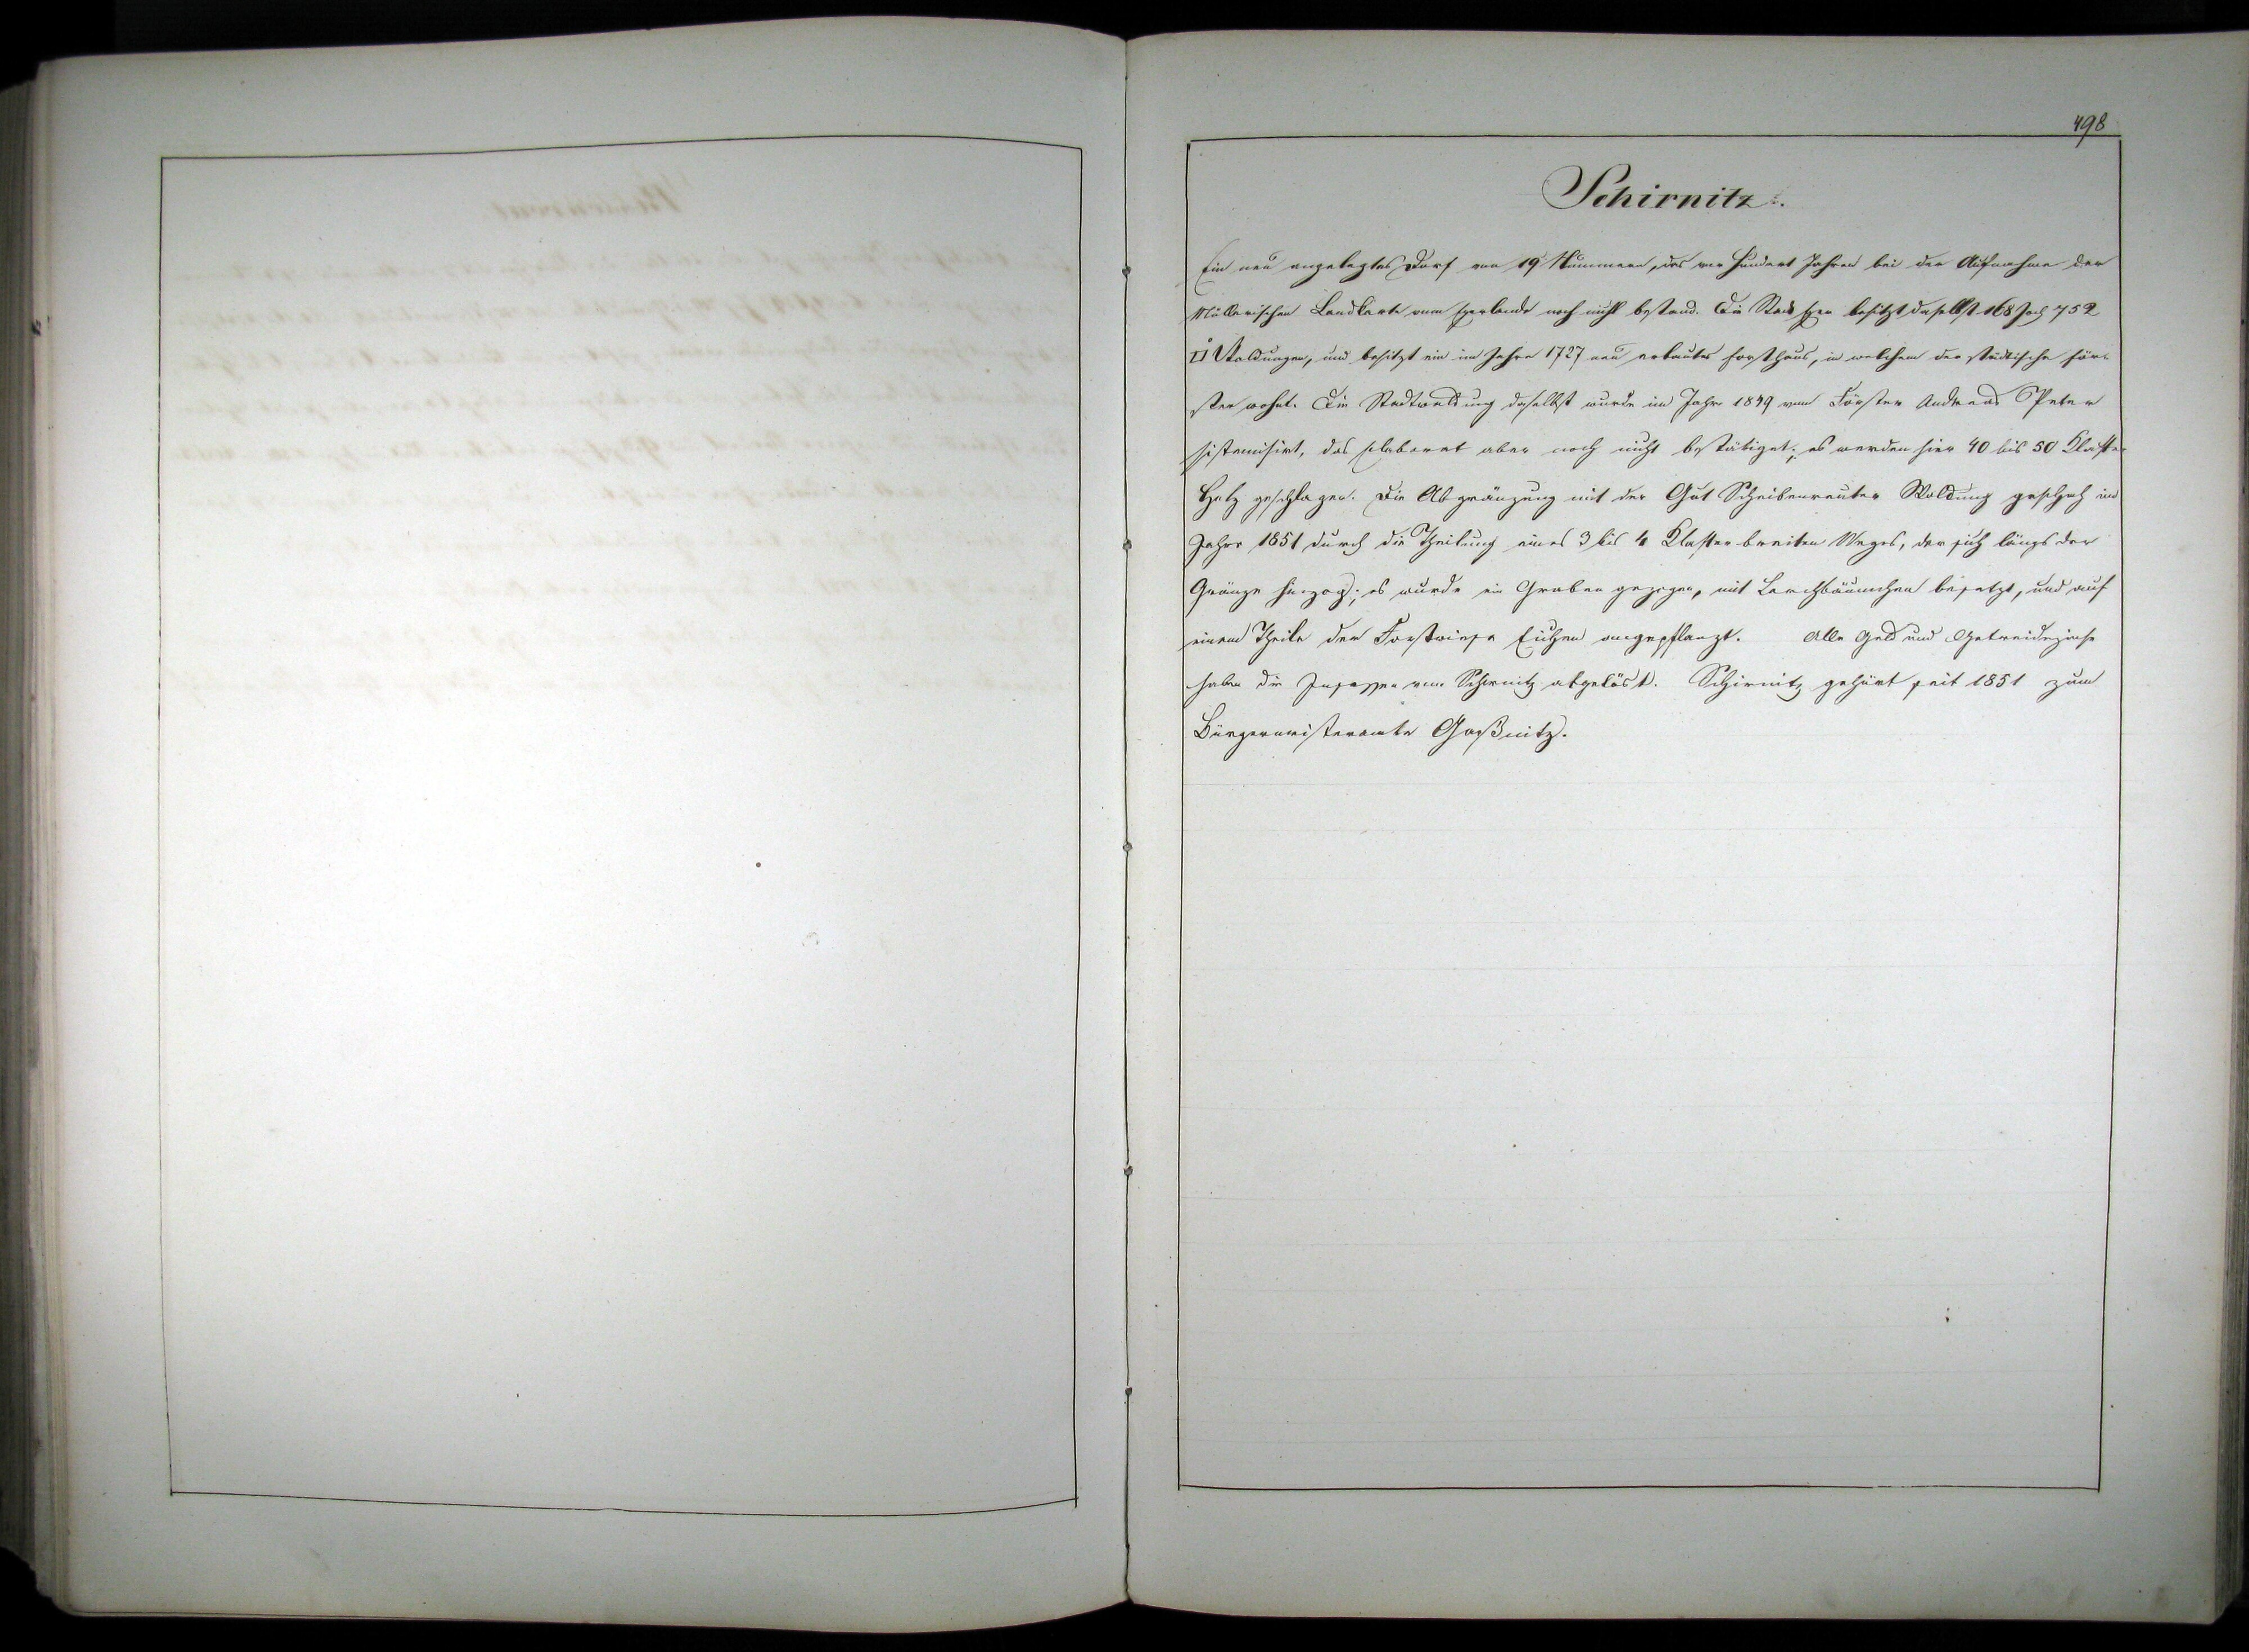 498
Schirnitz.
Ein neu angelegtes Dorf von 19 Nummern, das vor hundert Jahren bei der Aufnahme der
Müllerischen Landkarte vom Egerlande noch nicht bestand. Die Stadt Eger besitzt daselbst 168 Joch 752
□° Waldungen, und besitzt ein im Jahre 1727 neu erbautes Forsthaus, in welchem der städtische För-
ster wohnt. Die Stadtwaldung daselbst wurde im Jahre 1849 vom Förster Andreas Peter
sistemisirt, das Elaborat aber noch nicht bestätiget; es werden hier 40 bis 50 Klafter
Holz geschlagen. Die Abgränzung mit der Gut Scheibenreuter Waldung geschah im
Jahre 1851 durch die Theilung eines 3 bis 4 Klafter breiten Weges, der sich längs der
Gränze hinzog; es wurde ein Graben gezogen, mit Lerchbäumchen besetzt, und auf
einem Theile der Forstwiese Eichen angepflanzt. Alle Geld und Getreidezinse
haben die Insassen von Schirnitz abgelöst. Schirnitz gehört seit 1851 zum
Bürgermeisteramte Gaßnitz.